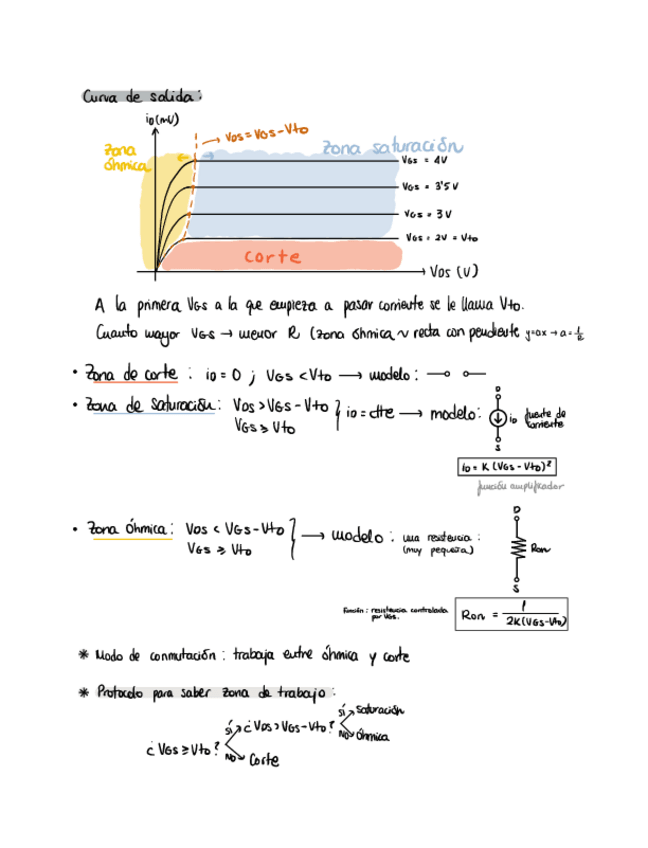 Curva de salida:
iD (mV)
VDS = VGS - Vto
Zona óhmica
Zona saturación
VGS = 4V
VGS = 3'5 V
VGS = 3 V
VGS = 2V = Vto
corte
VDS (V)
A la primera VGS a la que empieza a pasar corriente se le llama Vto.
Cuanto mayor VGS → menor R (zona óhmica ~ recta con pendiente y=ax → a = 1/R
• Zona de corte : iD = 0 ; VGS < Vto → modelo :
• Zona de saturación: VDS > VGS - Vto } iD = cte → modelo:
VGS ≥ Vto
D
iD
fuente de corriente
S
iD = K (VGS - Vto)²
función amplificador
• Zona óhmica: VDS < VGS - Vto } → modelo : una resistencia :
VGS ≥ Vto
(muy pequeña)
D
Ron
S
función : resistencia controlada por VGS.
Ron = 1 / 2K(VGS-Vto)
* Modo de conmutación : trabaja entre óhmica y corte
* Protocolo para saber zona de trabajo :
¿ VGS ≥ Vto ?
SÍ → ¿ VDS > VGS - Vto ?
SÍ → saturación
NO → óhmica
NO → Corte